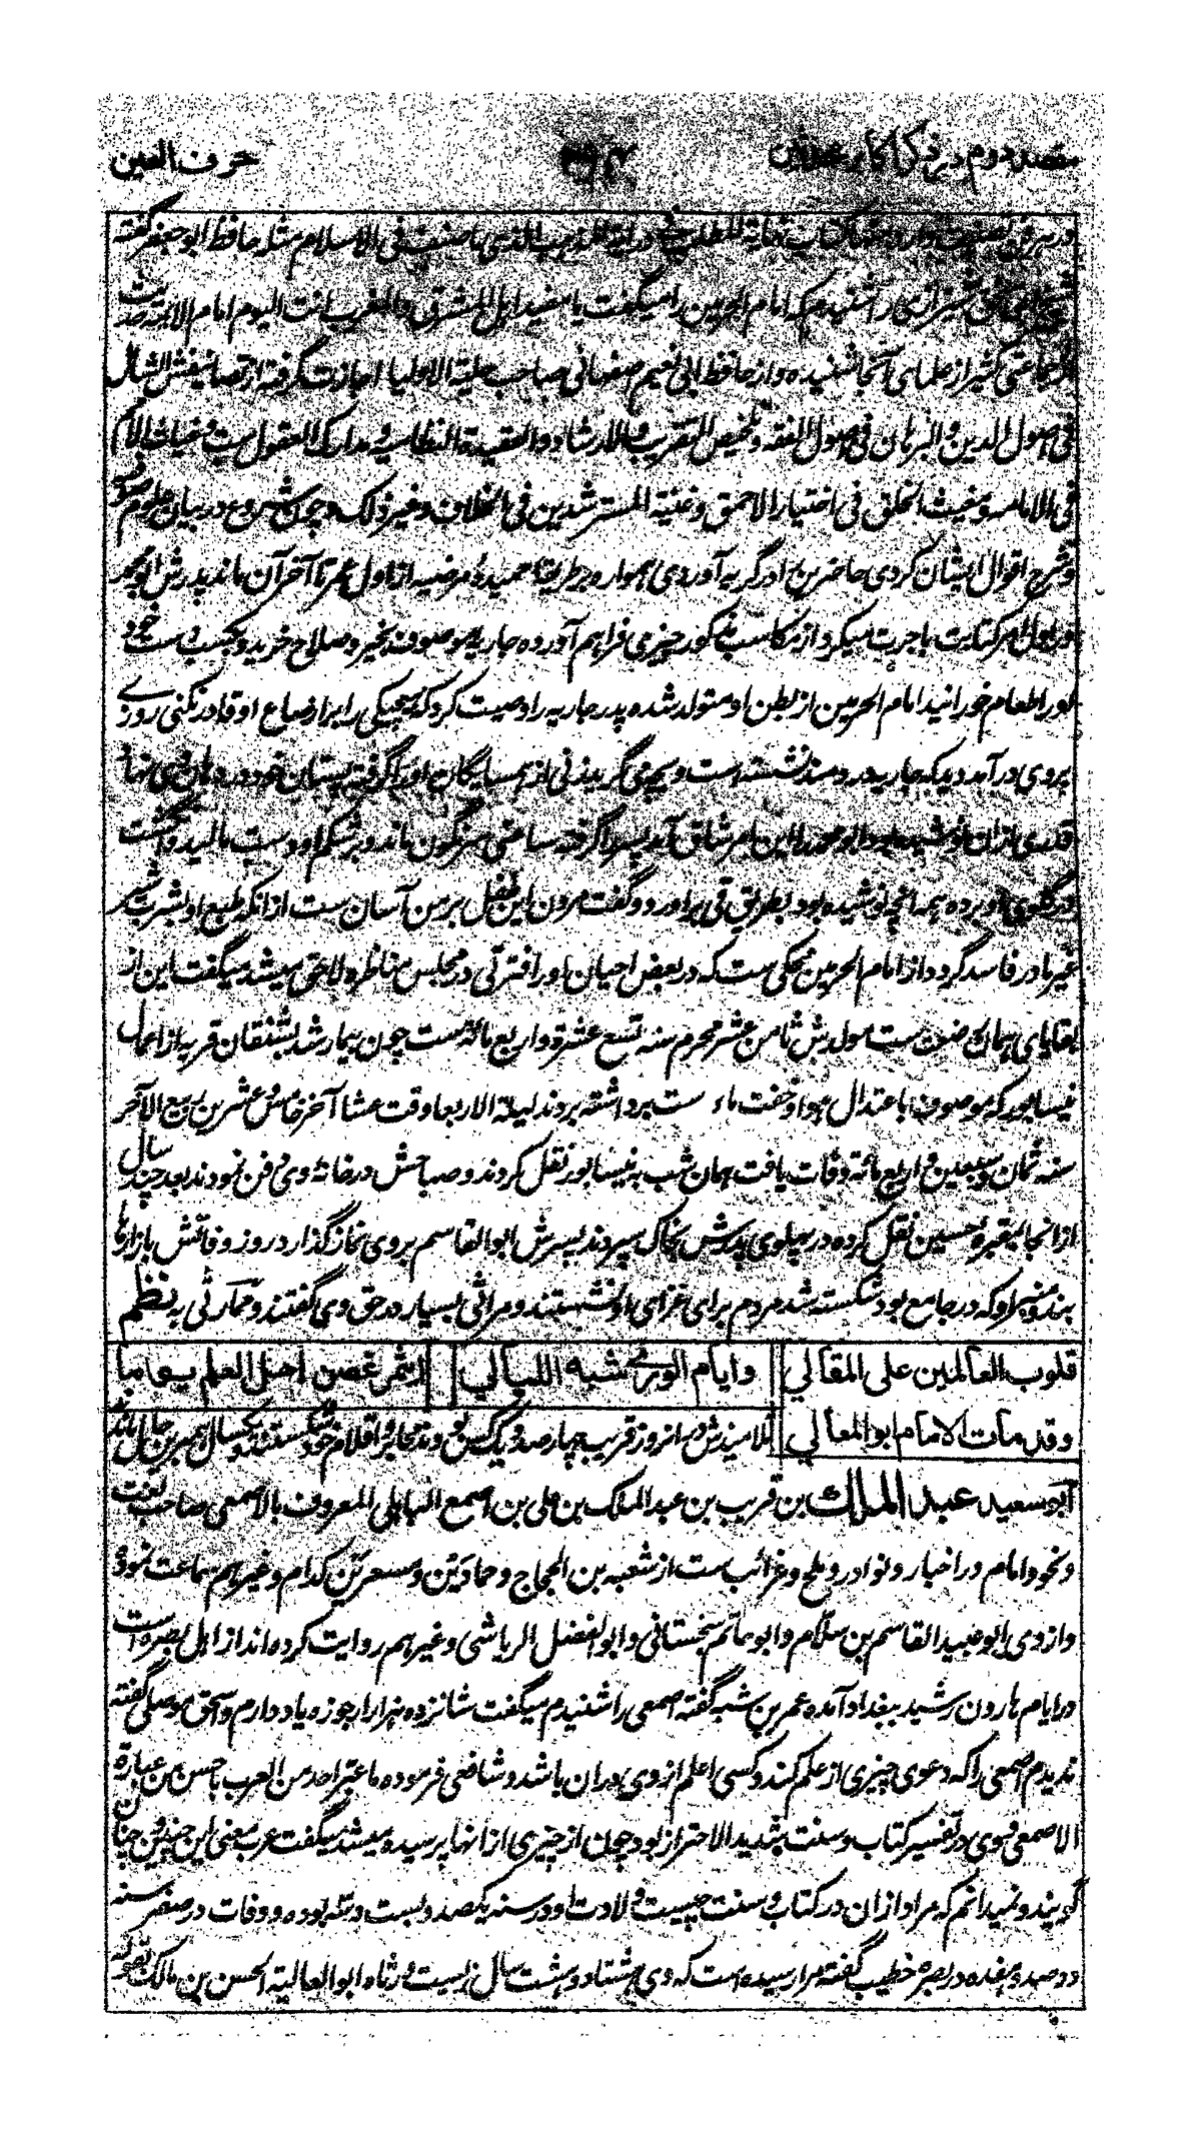 مقصد دوم در ذکر اکابر محدثین
حرف العین
در هر فن تصنیف دارد منها کتاب نهایة المطلب فی درایة المذهب الذی ما صنف فی الاسلام مثله حافظ ابو جعفر گفته
شیرازی را شنیدم که امام الحرمین را میگفت یا مفید اهل المشرق والمغرب انت الیوم امام الائمة حدیث
از جماعتی کثیر از علمای آنجا شنیده و از حافظ ابی نعیم صفهانی صاحب حلیة الاولیا اجازت گرفته از تصانیفش الشامل
فی اصول الدین والبرهان فی اصول الفقه و تلخیص التقریب والارشاد والعقیدة النظامیة و مدارک العقول ست و غیاث الامم
فی الامامة و مغیث الخلق فی اختیار الاحق و غنیة المسترشدین فی الخلاف و غیر ذلک و چون شروع در بیان علوم صوفیه
و شرح اقوال ایشان کردی حاضرین را در گریه آوردی همواره بر طریقهٔ حمیدهٔ مرضیه از اول عمر تا آخر آن ماند پدرش ابو محمد
در اول امر کتابت باجرت میکرد از مکاسب مذکور چیزی فراهم آورده جاریهٔ موصوفه بخیر و صلاح خرید و بکسب دست خود
او را طعام خورانید امام الحرمین از بطن او متولد شده پدر جاریه را وصیت کرد که هیچیکی را بر ارضاع او قادر نکنی روزے
بروی در آمد دید که جاریه دردمند نشسته است و بچه می گرید زنی از همسایگان او را گرفته پستان خود در دهان وی نهاد
قدری ازان نوشیده بود ابو محمد را این امر شاق آمد پسر را گرفته ساعتی سرنگون ماند و بر شکم او دست مالید و انگشت
در گلوی او برده همه آنچه نوشیده بود بطریق قی بر آورد و گفت مردن این طفل بر من آسان ست از آنکه طبع او بشرب شیر
غیر مادر فاسد گردد از امام الحرمین محکی ست که در بعض احیان او را فترتی در مجلس مناظره لاحق میشد میگفت این از
بقایای همان رضعت ست مولدش ثامن عشر محرم سنه تسع عشرة و اربع مائة ست چون بیمار شد ببشتنقان قریه از اعمال
نیسابور که موصوف باعتدال هوا و خفت ماء ست برداشته بردند لیلة الاربعا وقت عشا آخر خامس عشرین ربیع الآخر
سنه ثمان و سبعین و اربع مائة وفات یافت همان شب به نیسابور نقل کردند و صباحش در خانهٔ وی دفن نمودند بعد چند سال
از انجا بمقبرهٔ حسین نقل کرده در پهلوی پدرش بخاک سپردند پسرش ابو القاسم بروی نماز گذارد در روز وفاتش بازارها
بند و منبر او که در جامع بود شکسته شد مردم برای عزای او نشستند و مراثی بسیار در حق وی گفتند و مما رثی به نظم
قلوب العالمین علی المقالي وایام الوری شبه اللیالي ایثمر غصن اهل العلم یوما
وقد مات الامام ابو المعالي تلامیذش در انروز قریب چهار صد و یک کس بودند محابر و اقلام خود شکستند و یکسال همبرین حال ماندند
ابو سعید عبد الملک بن قریب بن عبد الملک بن علی بن اصمع الباهلی المعروف بالاصمعی صاحب لغت
و نحو و امام در اخبار و نوادر و ملح و غرائب ست از شعبه بن الحجاج و حمادین و مسعر بن کدام و غیرهم سماعت نموده
و از وی ابو عبید القاسم بن سلام و ابو حاتم سجستانی و ابو الفضل الریاشی و غیرهم روایت کرده اند از اهل بصره است
در ایام هارون رشید ببغداد آمده عمر بن شبه گفته اصمعی را شنیدم میگفت شانزده هزار ارجوزه یاد دارم و اسحق موصلی گفته
ندیدم اصمعی را که دعوی چیزی از علم کند و کسی اعلم از وی دران باشد و شافعی فرموده ما عبر احد من العرب باحسن من عبارة
الاصمعی و وی در تفسیر کتاب و سنت شدید الاحتراز بود چون از چیزی از انها پرسیده میشد میگفت عرب معنی این چنین و چنان
گویند و نمیدانم که مراد ازان در کتاب و سنت چیست ولادت او در سنه یکصد و بست و سه بوده و وفات در صفر سنه
دو صد و هفده در بصره خطیب گفته مرا رسیده است که وی هشتاد و هشت سال زیست و رثاه ابو العالیة الحسن بن مالک بقوله